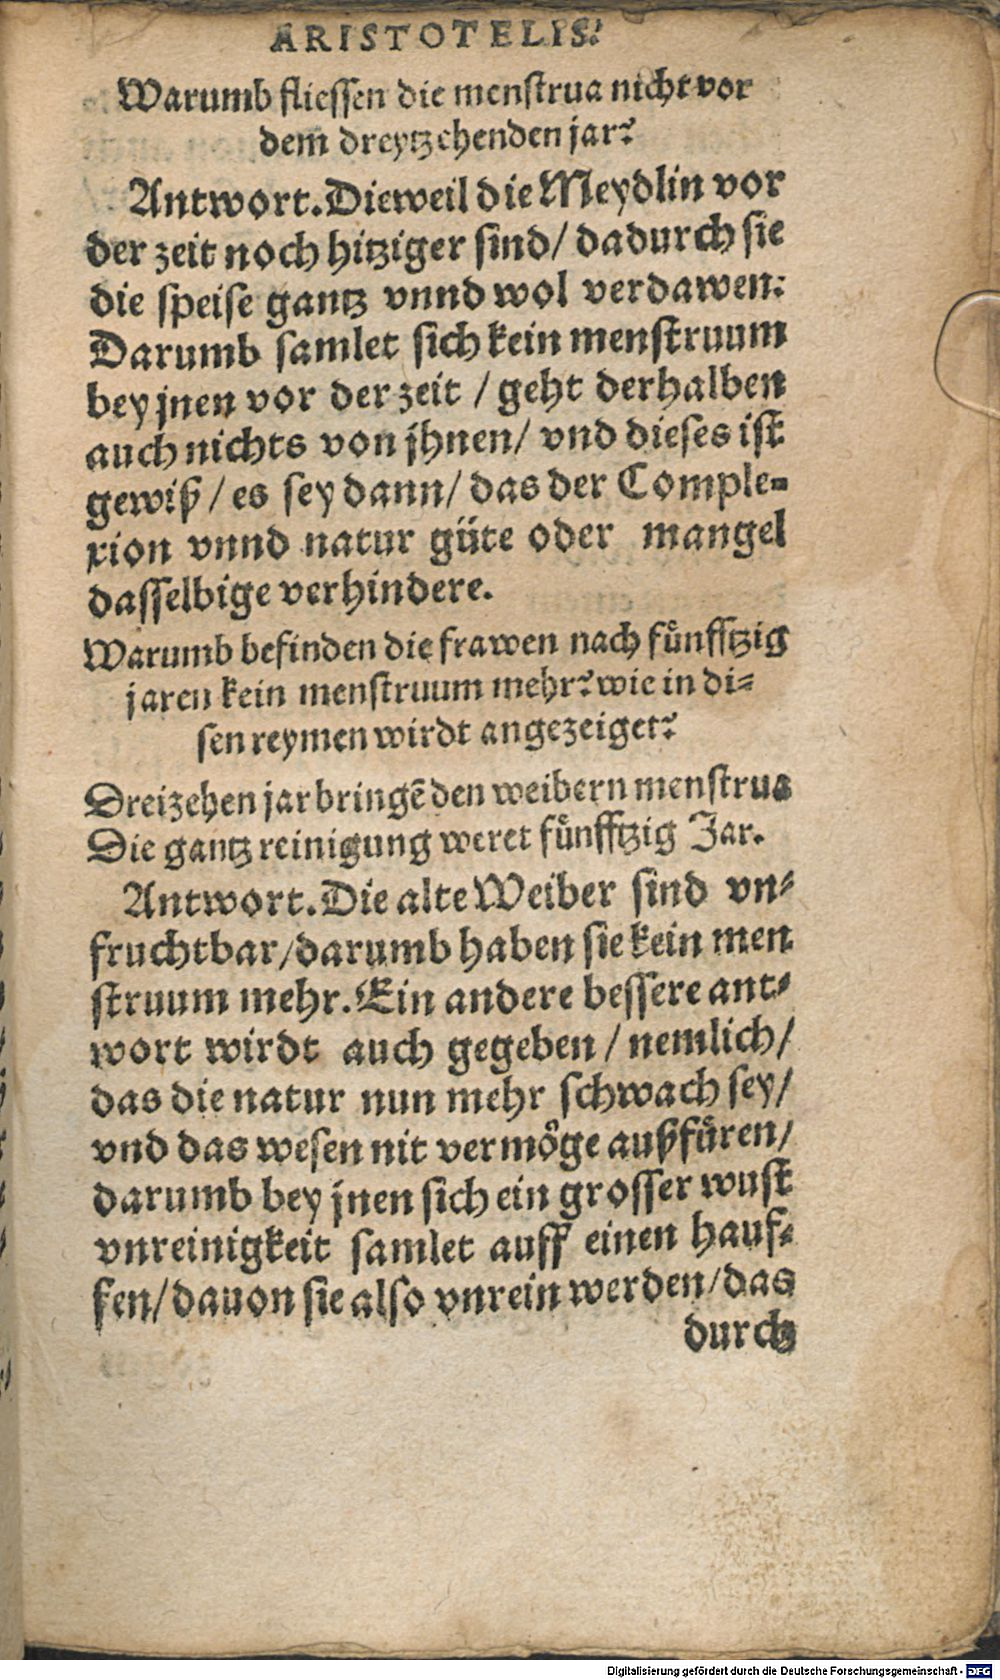 ARISTOTELIS.
Warumb fliessen die menstrua nicht vor
dem dreytzehenden jar?
Antwort. Dieweil die Meydlin vor
der zeit noch hitziger sind/ dadurch sie
die speise gantz vnnd wol verdawen:
Darumb samlet sich kein menstruum
bey jnen vor der zeit / geht derhalben
auch nichts von jhnen/ vnd dieses ist
gewiß / es sey dann/ das der Comple-
xion vnnd natur güte oder mangel
dasselbige verhindere.
Warumb befinden die frawen nach fünfftzig
jaren kein menstruum mehr? wie in di-
sen reymen wirdt angezeiget?
Dreizehen jar bringē den weibern menstrua
Die gantz reinigung weret fünfftzig Jar.
Antwort. Die alte Weiber sind vn-
fruchtbar/ darumb haben sie kein men
struum mehr. Ein andere bessere ant-
wort wirdt auch gegeben / nemlich/
das die natur nun mehr schwach sey/
vnd das wesen nit vermöge außfüren/
darumb bey jnen sich ein grosser wust
vnreinigkeit samlet auff einen hauf-
fen/ dauon sie also vnrein werden/ das
durch
Digitalisierung gefördert durch die Deutsche Forschungsgemeinschaft - DFG